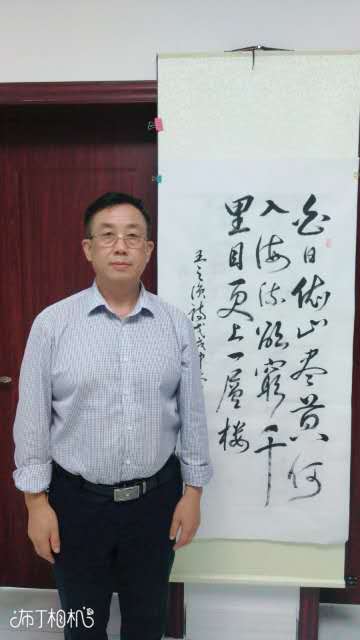 白日依山尽黄河
入海流欲窮千
里目更上一層楼
王之涣诗戊戌中
布丁相机